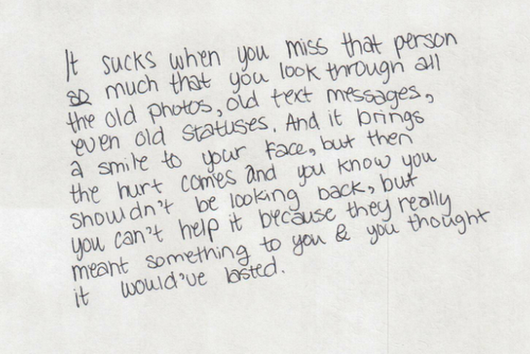 It sucks when you miss that person
so much that you look through all
the old photos, old text messages,
even old statuses. And it brings
a smile to your face, but then
the hurt comes and you know you
shouldn't be looking back, but
you can't help it because they really
meant something to you & you thought
it would've lasted.